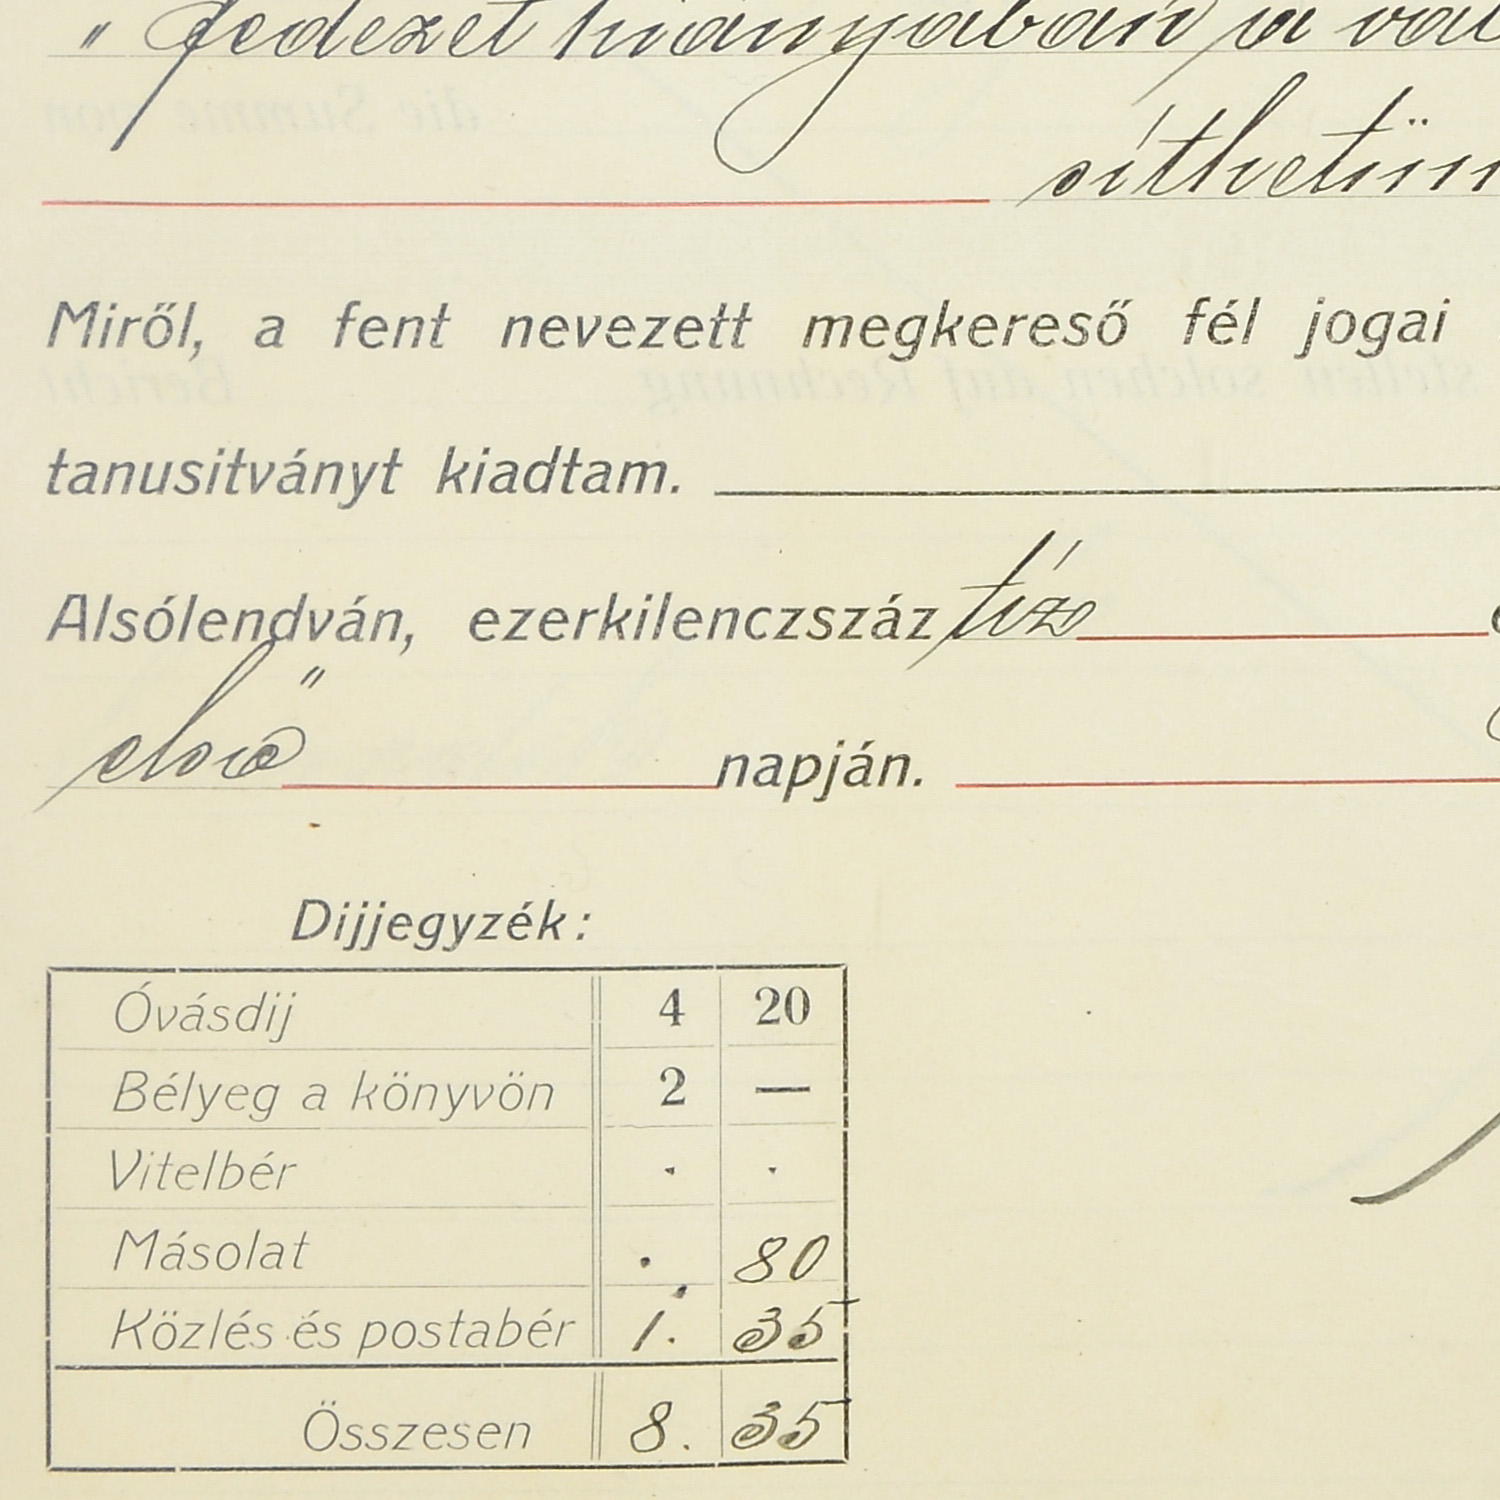 " fedezet hiányában a vál
síthetüm
Miről, a fent nevezett megkereső fél jogai
tanusitványt kiadtam.
Alsólendván, ezerkilenczszáz tíz
első napján.
Dijjegyzék:
Óvásdij 4 20
Bélyeg a könyvön 2 —
Vitelbér . .
Másolat . 80
Közlés és postabér 1. 35
Összesen 8. 35